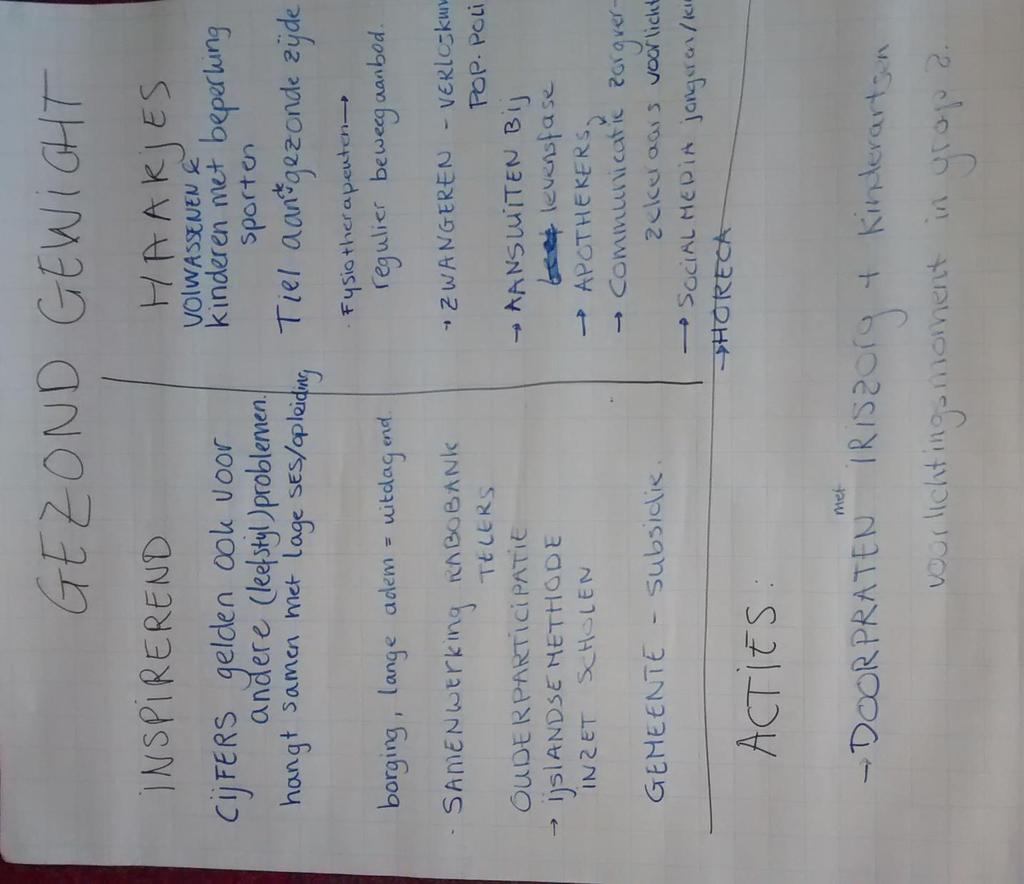 GEZOND GEWICHT
INSPIREREND
CIJFERS gelden ook voor
andere (leefstijl)problemen.
hangt samen met lage SES/opleiding
borging, lange adem = uitdagend.
· SAMENWERKING RABOBANK
TELERS
OUDERPARTICIPATIE
→ IJSLANDSE METHODE
INZET SCHOLEN
GEMEENTE - subsidie.
HAAKJES
VOLWASSENEN &
kinderen met beperking
sporten
Tiel aan* gezonde zijde
· Fysiotherapeuten →
regulier beweegaanbod.
→ ZWANGEREN - VERLOSKUN
POP. POLI
→ AANSLUITEN BIJ
levensfase
→ APOTHEKERS
→ Communicatie zorgver-
zekeraars voorlicht
→ SOCIAL MEDIA jongeren/
→ HORECA
ACTIES:
→ DOORPRATEN met IRISZORG + Kinderartsen
voorlichtingsmoment in groep 2.